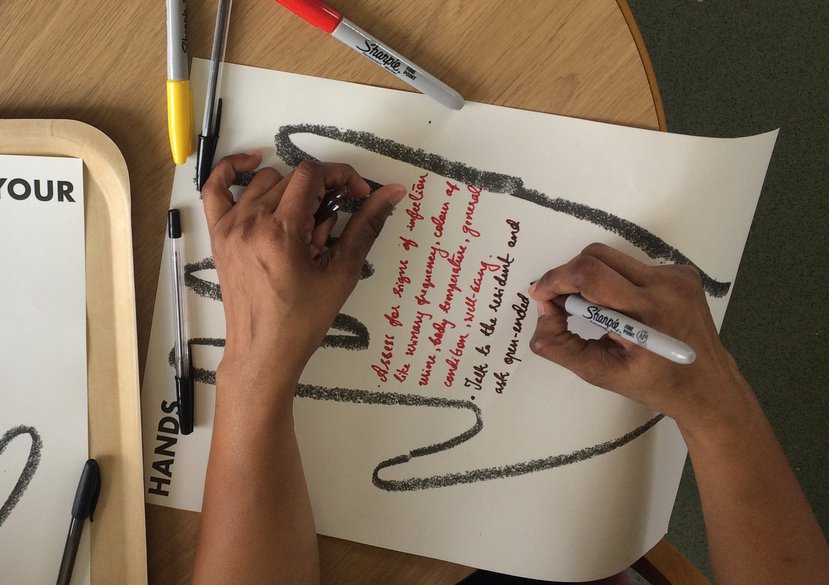 YOUR
HANDS
Sharpie
FINE POINT
Sharpie
Sharpie
• Assess for signs of infection
like urinary frequency, colour of
urine, body temperature, general
condition, well-being.
• Talk to the resident and
ask open-ended